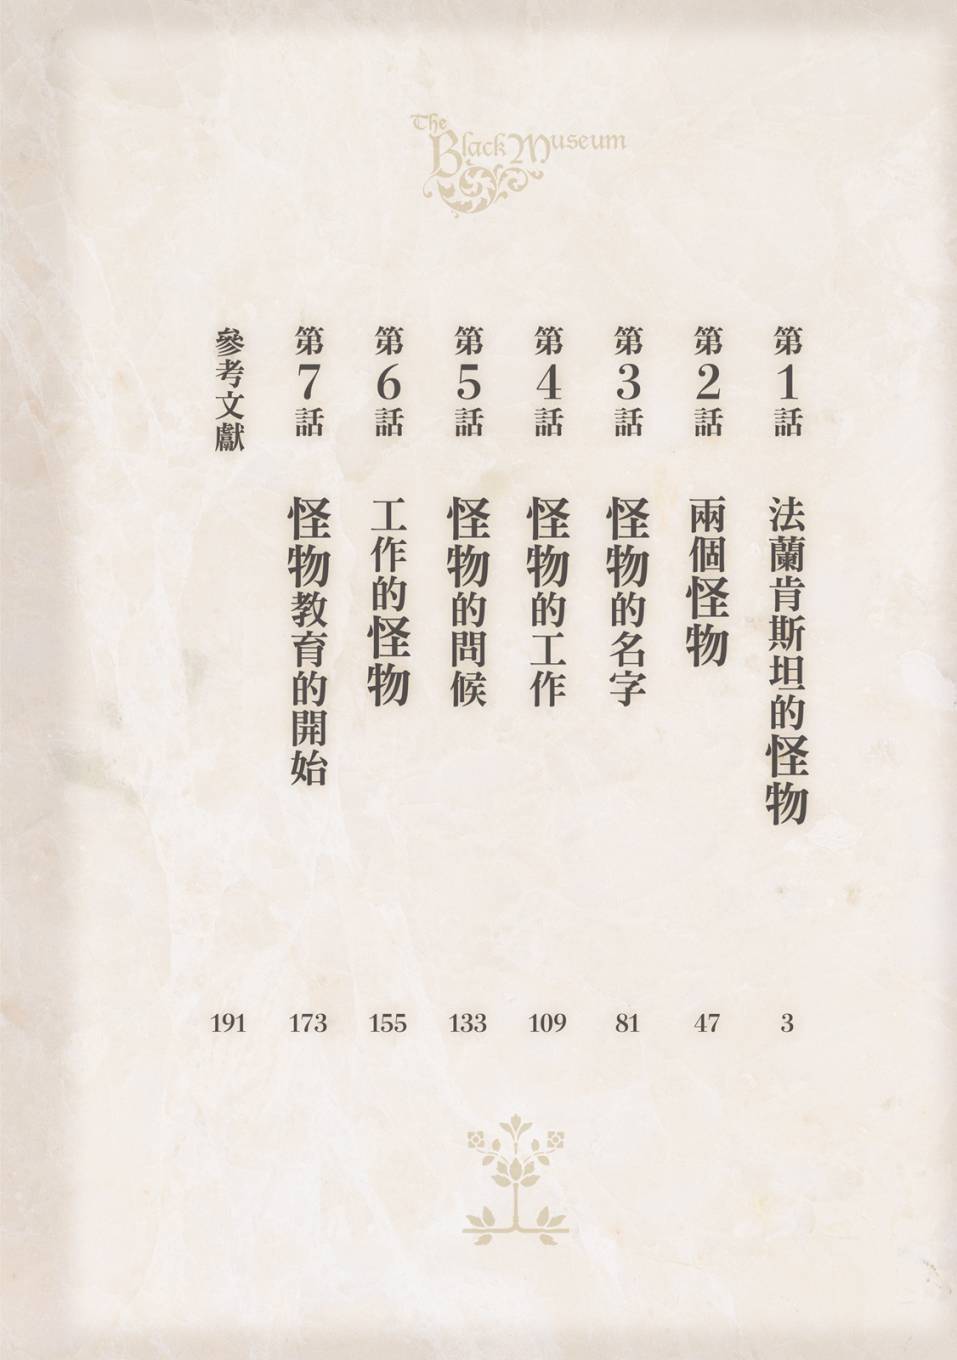 The Black Museum
第1話 法蘭肯斯坦的怪物 3
第2話 兩個怪物 47
第3話 怪物的名字 81
第4話 怪物的工作 109
第5話 怪物的問候 133
第6話 工作的怪物 155
第7話 怪物教育的開始 173
參考文獻 191